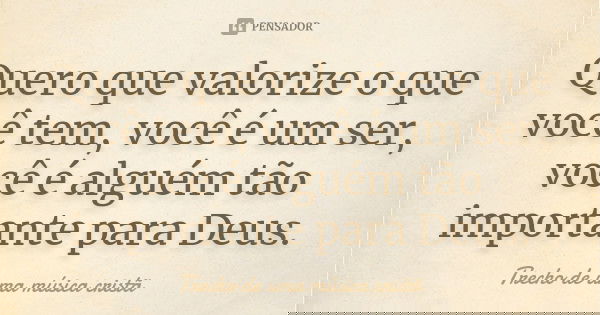 PENSADOR
Quero que valorize o que
você tem, você é um ser,
você é alguém tão
importante para Deus.
Trecho de uma música cristã